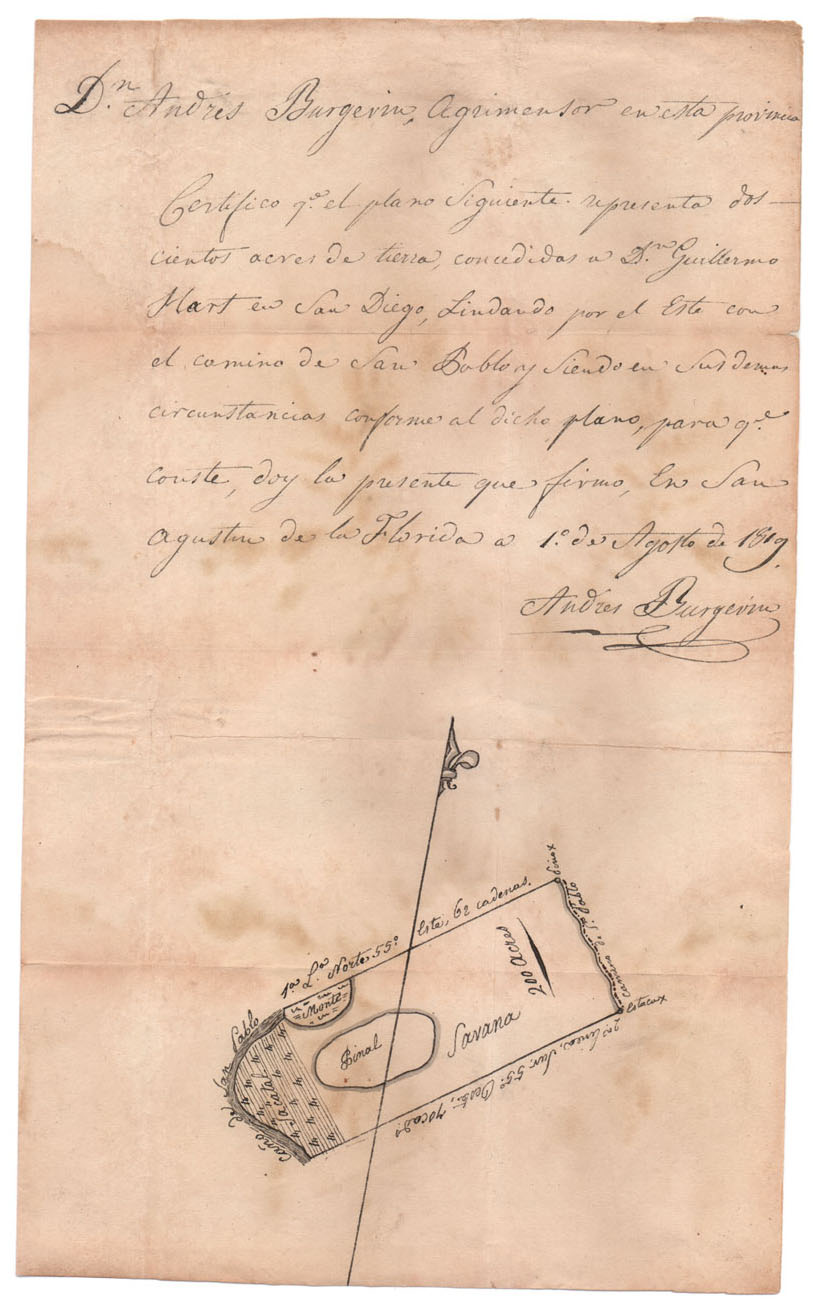 D.n Andres Burgevin, Agrimensor en esta provincia
Certifico q.e el plano Siguiente representa dos-
cientos acres de tierra, concedidas a D.n Guillermo
Hart en San Diego, Lindando por el Este con
el camino de San Pablo, y Siendo en Sus demas
circunstancias conforme al dicho plano, para q.e
conste, doy la presente que firmo, En San
Agustin de la Florida a 1.o de Agosto de 1819.
Andres Burgevin
1.a L.a Norte 55.o Este, 62 cadenas.
Pino x
Camino de S.n Pablo
Estaca x
200 Acres
Monte
Pinal
Savana
Sacatal
Caño de San Pablo
2.a Linea, Sur 55.o Oeste, 70 cad.s